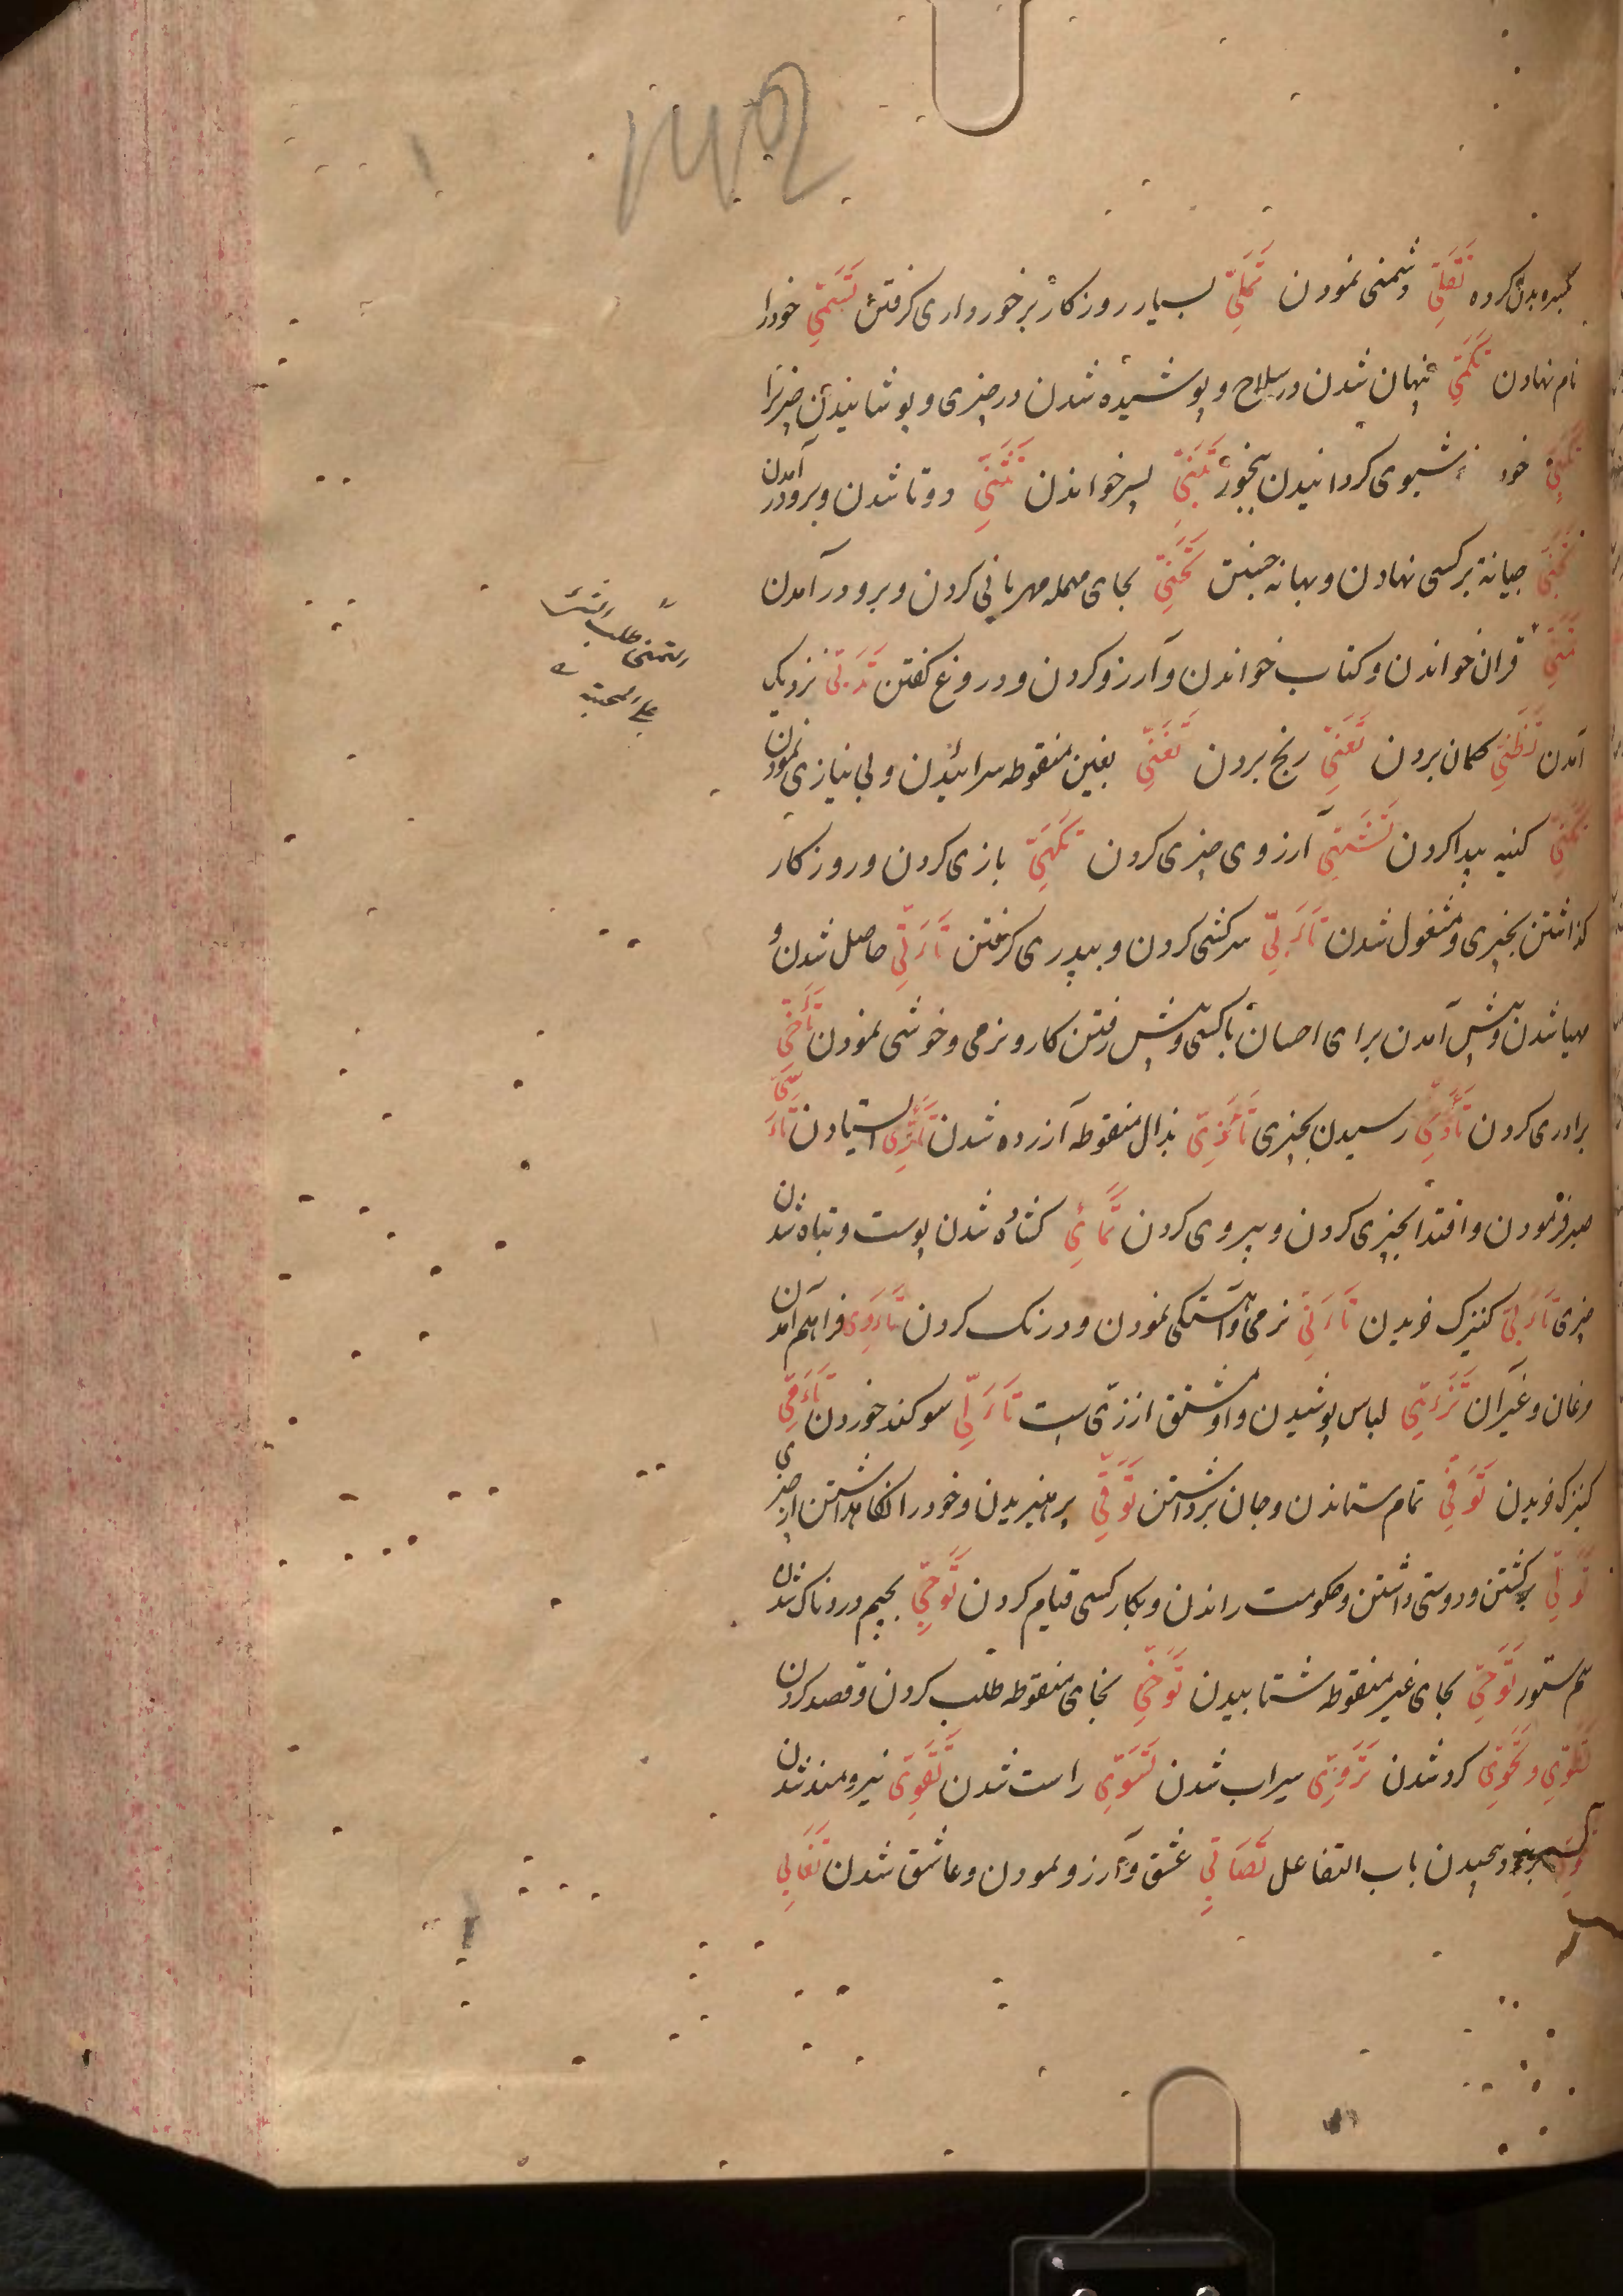 کرده تَقَلِّی دشمنی نمودن تَمَلِّی بسیار روزکار برخورداری کرفتن تَسَمِّی خود را
نام نهادن تَکَمِّی پنهان شدن در سلاح و پوشیده شدن در چیزی و پوشانیدن چیزی را
خود شبوی کردانیدن بخور تَبَنِّی پسر خواندن تَثَنِّی دوتا شدن و برو در آمدن
تَجَنِّی جیانة برکسی نهادن و بهانه جستن تَحَنِّی بحای مهمله مهربانی کردن و برو در آمدن
تَمَنِّی قران خواندن و کتاب خواندن و آرزو کردن و دروغ کفتن تَدَنِّی نزدیک
آمدن تَظَنِّی کمان بردن تَعَنِّی رنج بردن تَغَنِّی بغین منقوطه سرائیدن و بی نیازی نمودن
تَکَنِّی کنیه پیدا کردن تَشَهِّی آرزوی چیزی کردن تَلَهِّی بازی کردن و روزکار
کذاشتن بچیزی و مشغول شدن تَأَبِّی سرکشی کردن و بپدری کرفتن تَأَتِّی حاصل شدن و
مهیا شدن و پیش آمدن برای احسان باکسی و پیش رفتن کار و نرمی و خوشی نمودن تَأَخِّی
برادری کردن تَأَدِّی رسیدن بچیزی تَأَذِّی بذال منقوطه آزرده شدن تَأَرِّی ایستادن تَأَسِّی
صبر فرمودن و اقتدا بچیزی کردن و پیروی کردن تَمَائِی کشاده شدن پوست و تباه شدن
چیزی کنیزک خریدن تَأَنِّی نرمی و آهستکی نمودن و درنک کردن تَأَوِّی فراهم آمدن
مرغان و غیر آن تَزَیِّی لباس پوشیدن و او مشتق از زی است تَأَلِّی سوکند خوردن تَأَمِّی
کنیزک خریدن تَوَفِّی تمام ستاندن و جان برداشتن تَوَقِّی پرهیزیدن و خود را نکاهداشتن از چیزی
تَوَلِّی برکشتن و دوستی داشتن و حکومت راندن و بکار کسی قیام کردن تَوَجِّی بجیم دردناک شدن
سم ستور تَوَحِّی بحای غیر منقوطه شتابیدن تَوَخِّی بخای منقوطه طلب کردن و قصد کردن
تَلَوِّی و تَحَوِّی کرد شدن تَرَوِّی سیراب شدن تَسَوِّی راست شدن تَقَوِّی نیرومند شدن
پیچیدن باب التفاعل تَصَابِی عشق و آرزو نمودن و عاشق شدن تَغَابِی
التمنی طلب
علی المحبته